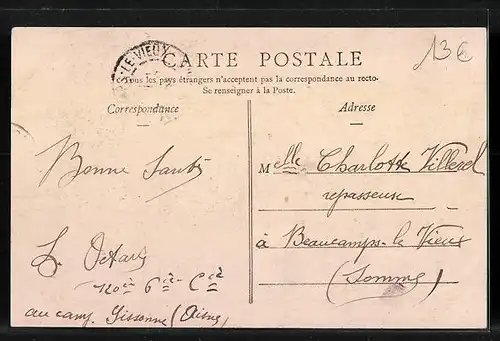 13€
S-LE-VIEUX
CARTE POSTALE
Tous les pays étrangers n'acceptent pas la correspondance au recto.
Se renseigner à la Poste.
Correspondance
Adresse
Bonne Santé
Melle Charlotte
repasseuse
à Beaucamps-le Vieux
(Somme)
L.
120e 6e Cie
au camp. Sissonne (Aisne)